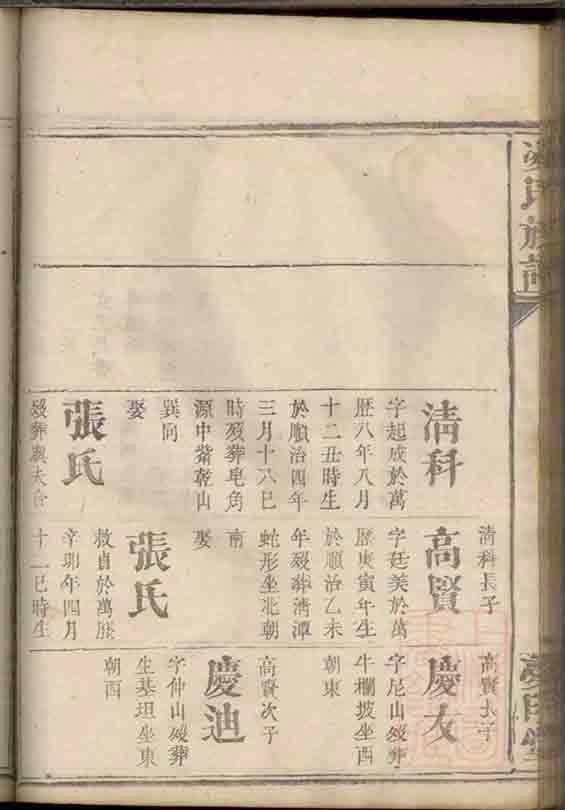 氏族譜
清科
字起成於萬
歷八年八月
十二丑時生
於順治四年
三月十八巳
時歿葬皂角
源中嘴乾山
巽向
娶
張氏
歿葬與夫合
清科長子
高賢
字廷美於萬
歷庚寅年生
於順治乙未
年歿葬清潭
蛇形坐北朝
南
娶
張氏
救貞於萬歷
辛卯年四月
十二巳時生
高賢長子
慶友
字尼山歿葬
牛欄坡坐西
朝東
高賢次子
慶迪
字仲山歿葬
生基坦坐東
朝西